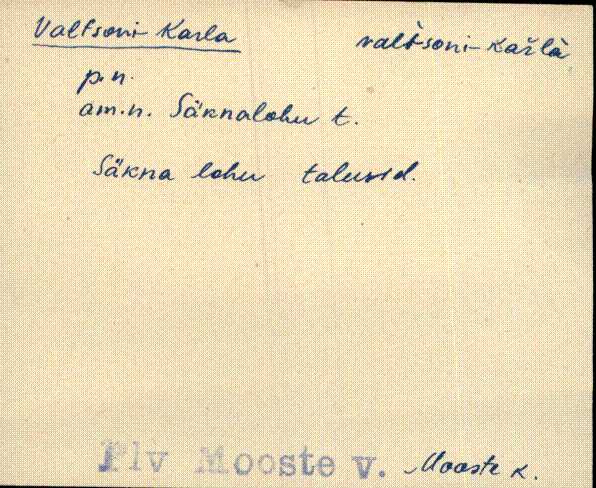 Valtsoni Karla valt̀soni-kaŕlà
p.n.
am.n. Säknalohu t.
Säkna lohu talusid.
Plv Mooste v. Mooste k.